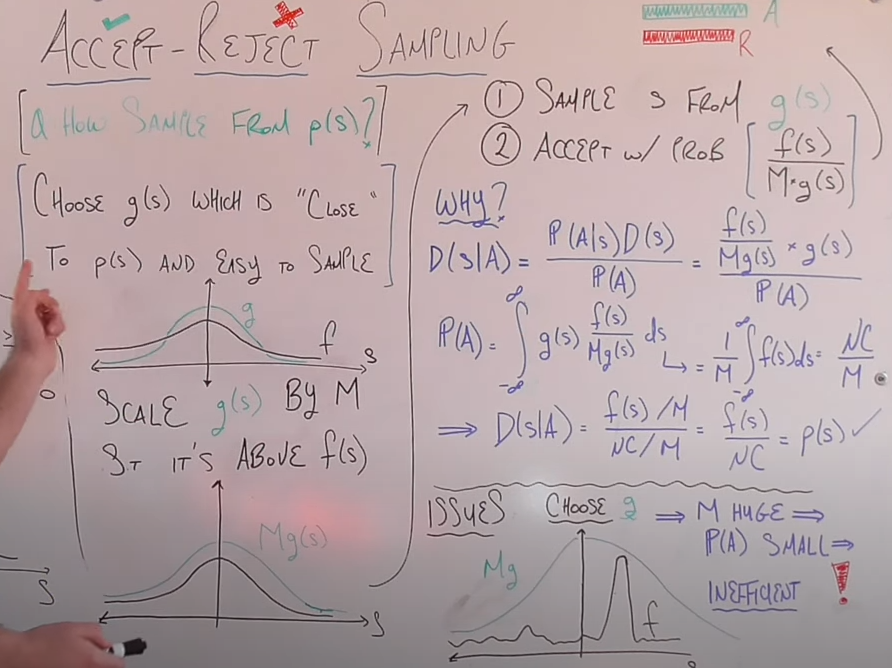 ACCEPT-REJECT SAMPLING
A
R
[Q HOW SAMPLE FROM p(s)?]
[CHOOSE g(s) WHICH IS "CLOSE"
TO p(s) AND EASY TO SAMPLE]
g
f
s
SCALE g(s) BY M
ST IT'S ABOVE f(s)
Mg(s)
s
① SAMPLE s FROM g(s)
② ACCEPT w/ PROB [f(s) / M*g(s)]
WHY?
D(s|A) = P(A|s)D(s) / P(A) = f(s)/Mg(s) * g(s) / P(A)
P(A) = ∫_{-∞}^{∞} g(s) f(s)/Mg(s) ds ↳ = 1/M ∫_{-∞}^{∞} f(s)ds = NC/M
⟹ D(s|A) = f(s)/M / NC/M = f(s)/NC = p(s) ✓
ISSUES CHOOSE g ⟹ M HUGE ⟹
P(A) SMALL ⟹
INEFFICIENT !
Mg
f
S
0